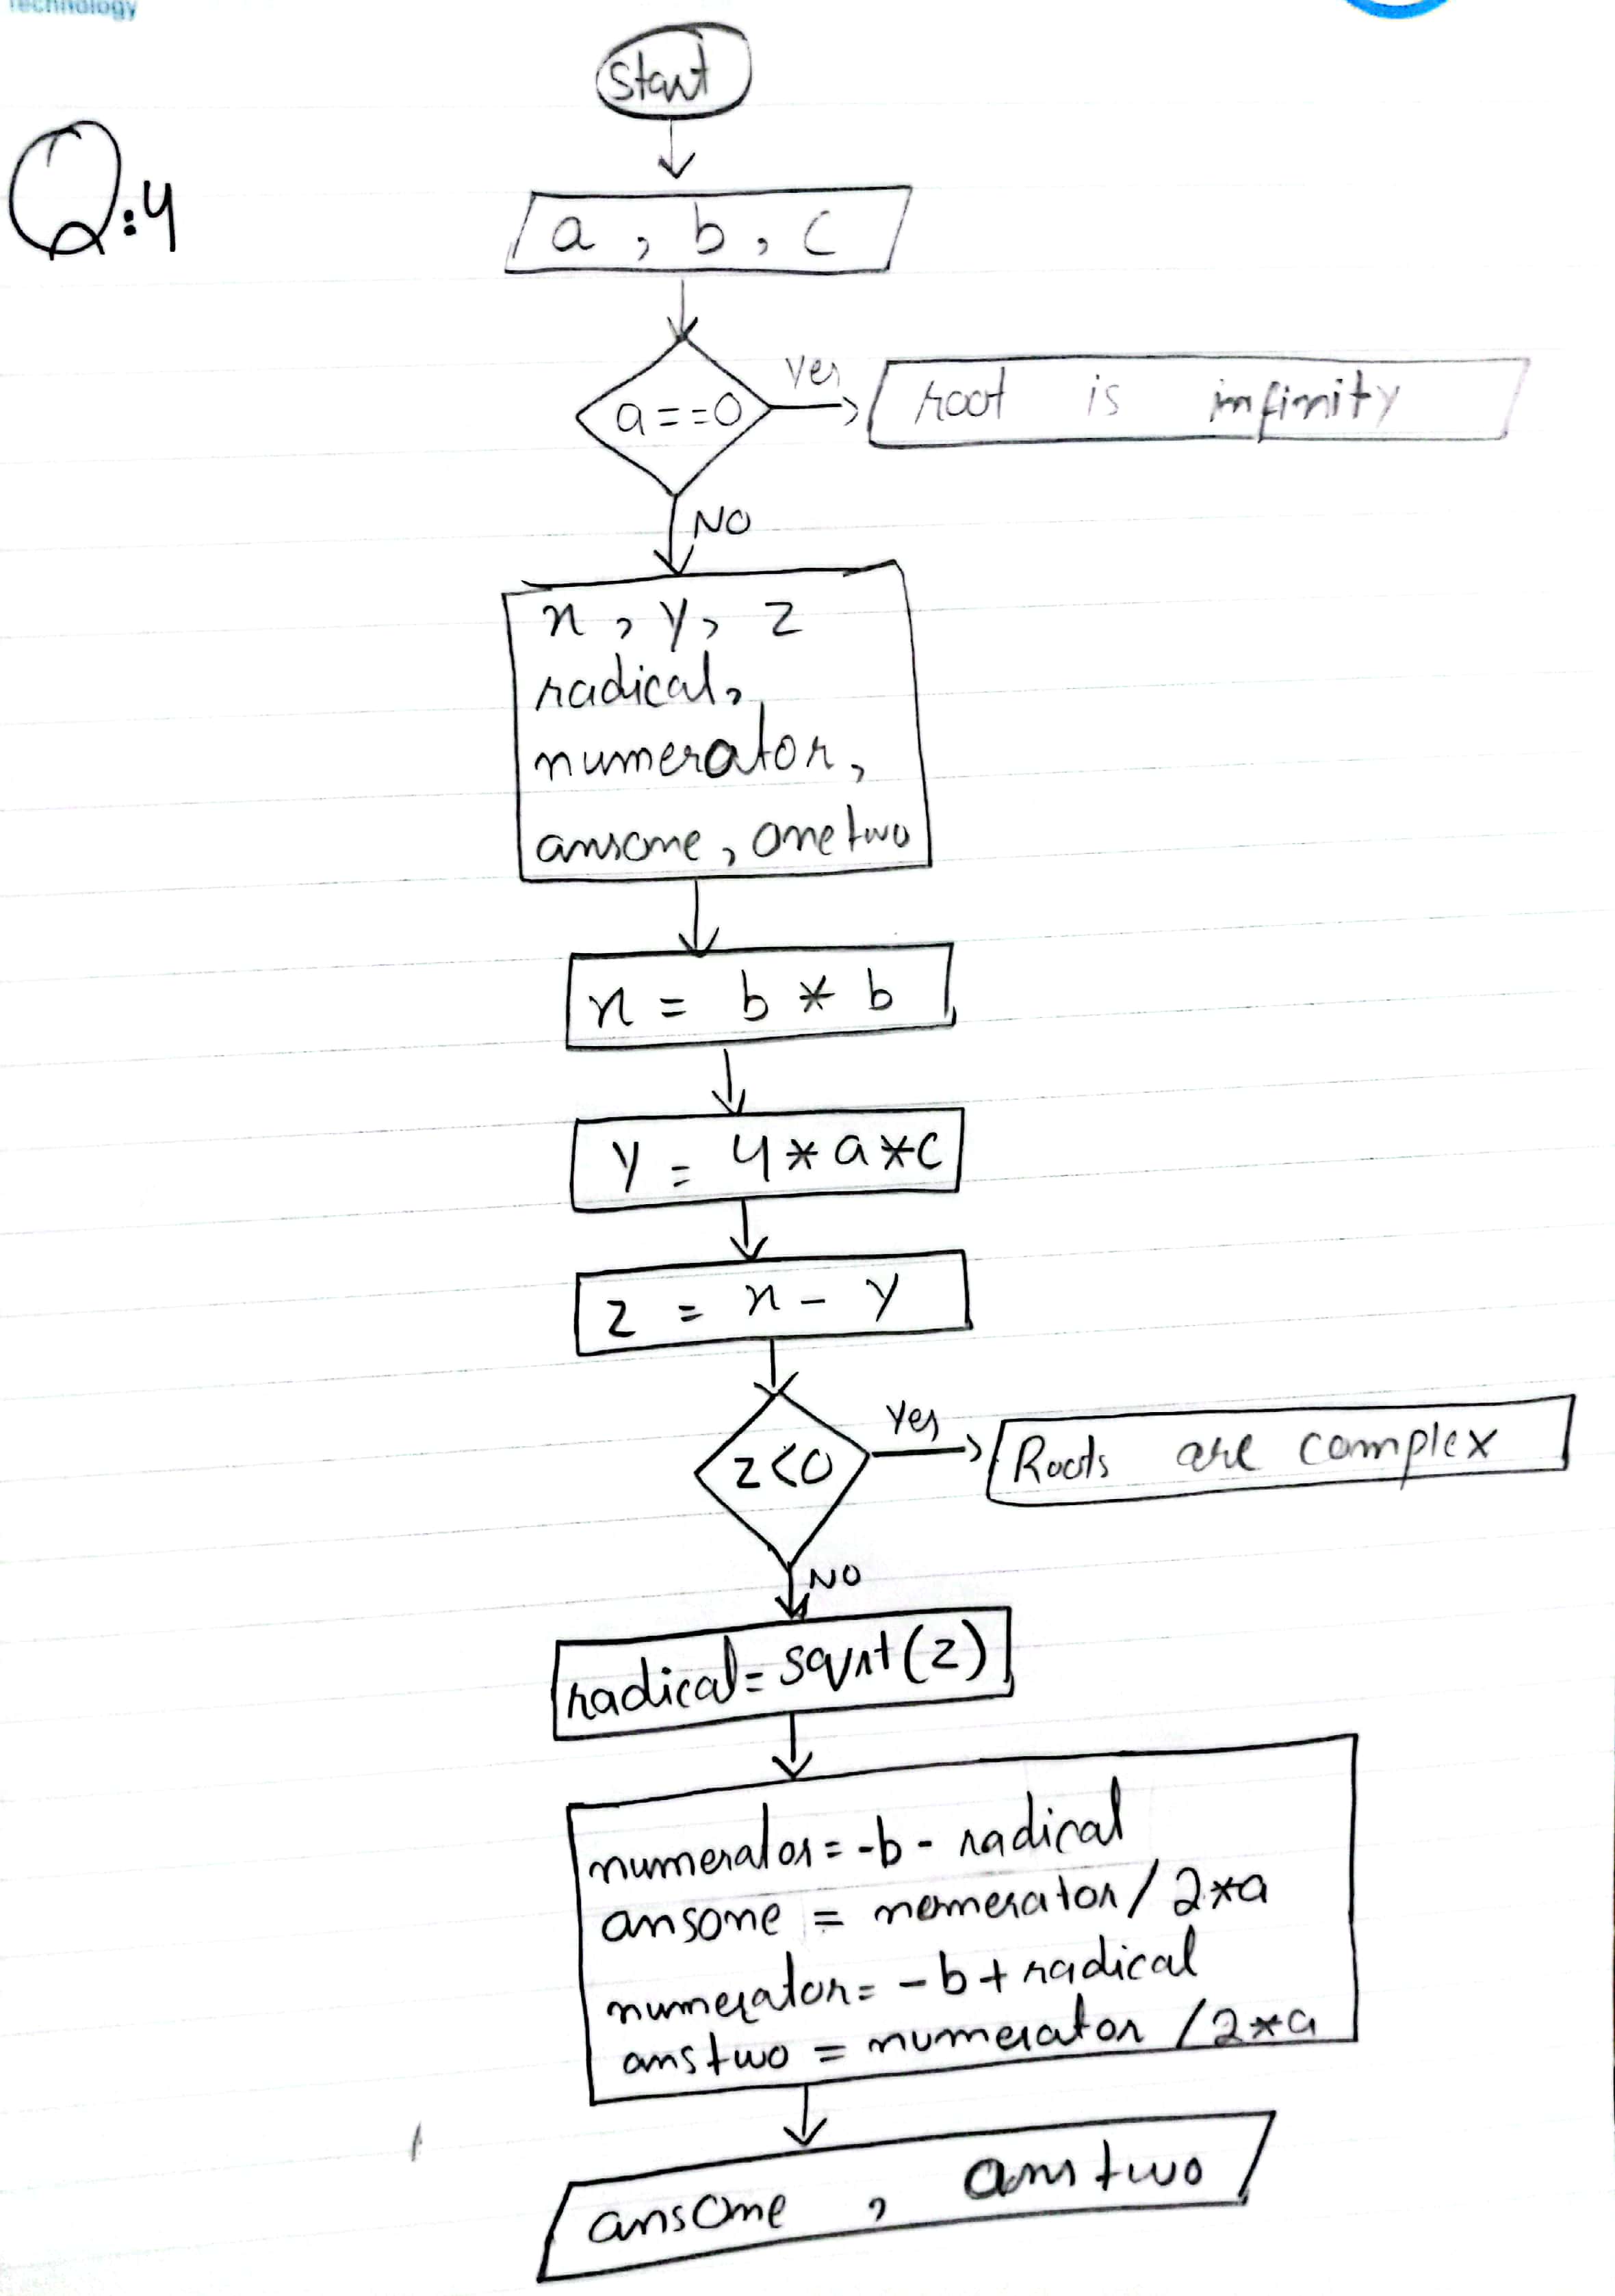 Technology
Start
Q:4
a, b, c
a==0
Yes
root is infinity
NO
x, y, z
radical,
numerator,
ansone, onetwo
x = b * b
y = 4*a*c
z = x - y
z<0
Yes
Roots are complex
NO
radical=sqrt(z)
numerator=-b- radical
ansone = nemerator/2*a
numerator= -b+radical
anstwo = numerator /2*a
ansone, anstwo